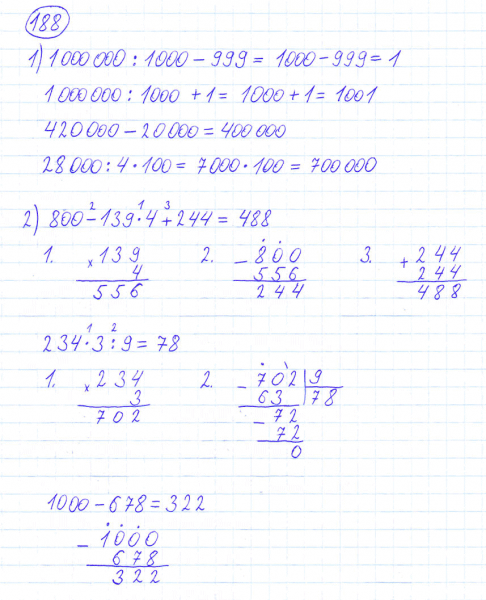 188
1) 1 000 000 : 1000 - 999 = 1000 - 999 = 1
1 000 000 : 1000 + 1 = 1000 + 1 = 1001
420 000 - 20 000 = 400 000
28 000 : 4 · 100 = 7 000 · 100 = 700 000
2 1 3
2) 800 - 139 · 4 + 244 = 488
1. × 139 2. - 800 3. + 244
4 556 244
556 244 488
1 2
234 · 3 : 9 = 78
1. × 234 2. - 702 | 9
3 63 | 78
702 - 72
72
0
1000 - 678 = 322
- 1000
678
322